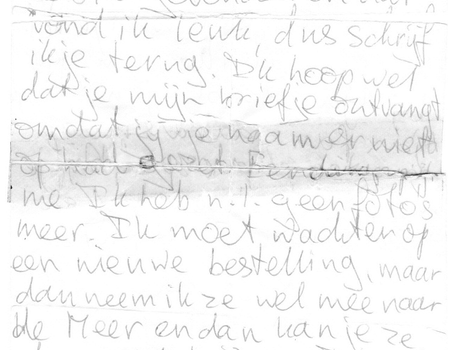 vond ik leuk, dus schrijf
ik je terug. Ik hoop wel
dat je mijn briefje ontvangt
omdat je je naam er niet
op had gezet.
me Ik heb n.l. geen foto's
meer. Ik moet wachten op
een nieuwe bestelling, maar
dan neem ik ze wel mee naar
de Meer en dan kan je ze